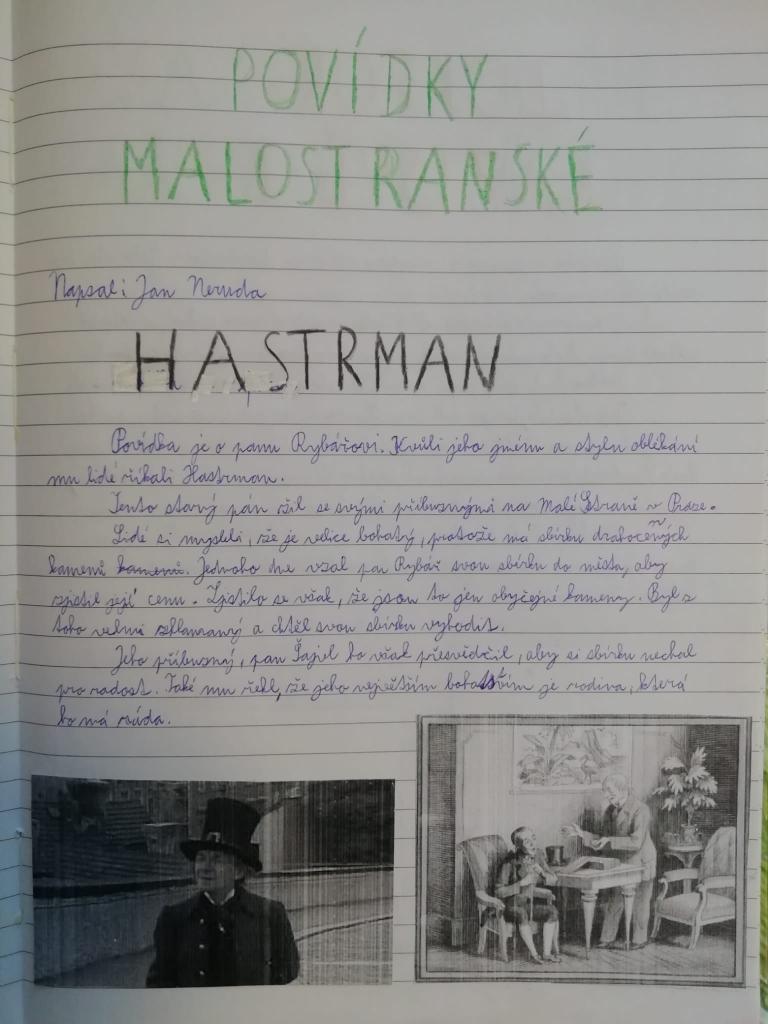 POVÍDKY
MALOSTRANSKÉ
Napsal: Jan Neruda
HASTRMAN
Povídka je o panu Rybářovi. Kvůli jeho jménu a stylu oblékání
mu lidé říkali Hastrman.
Tento starý pán žil se svými příbuznými na Malé Straně v Praze.
Lidé si mysleli, že je velice bohatý, protože má sbírku drahocených
kamenů kamenů. Jednoho dne vzal pan Rybář svou sbírku do města, aby
zjistil její cenu. Zjistilo se však, že jsou to jen obyčejné kameny. Byl z
toho velmi zklamaný a chtěl svou sbírku vyhodit.
Jeho příbuzný, pan Šajvl ho však přesvědčil, aby si sbírku nechal
pro radost. Také mu řekl, že jeho největším bohatstvím je rodina, která
ho má ráda.